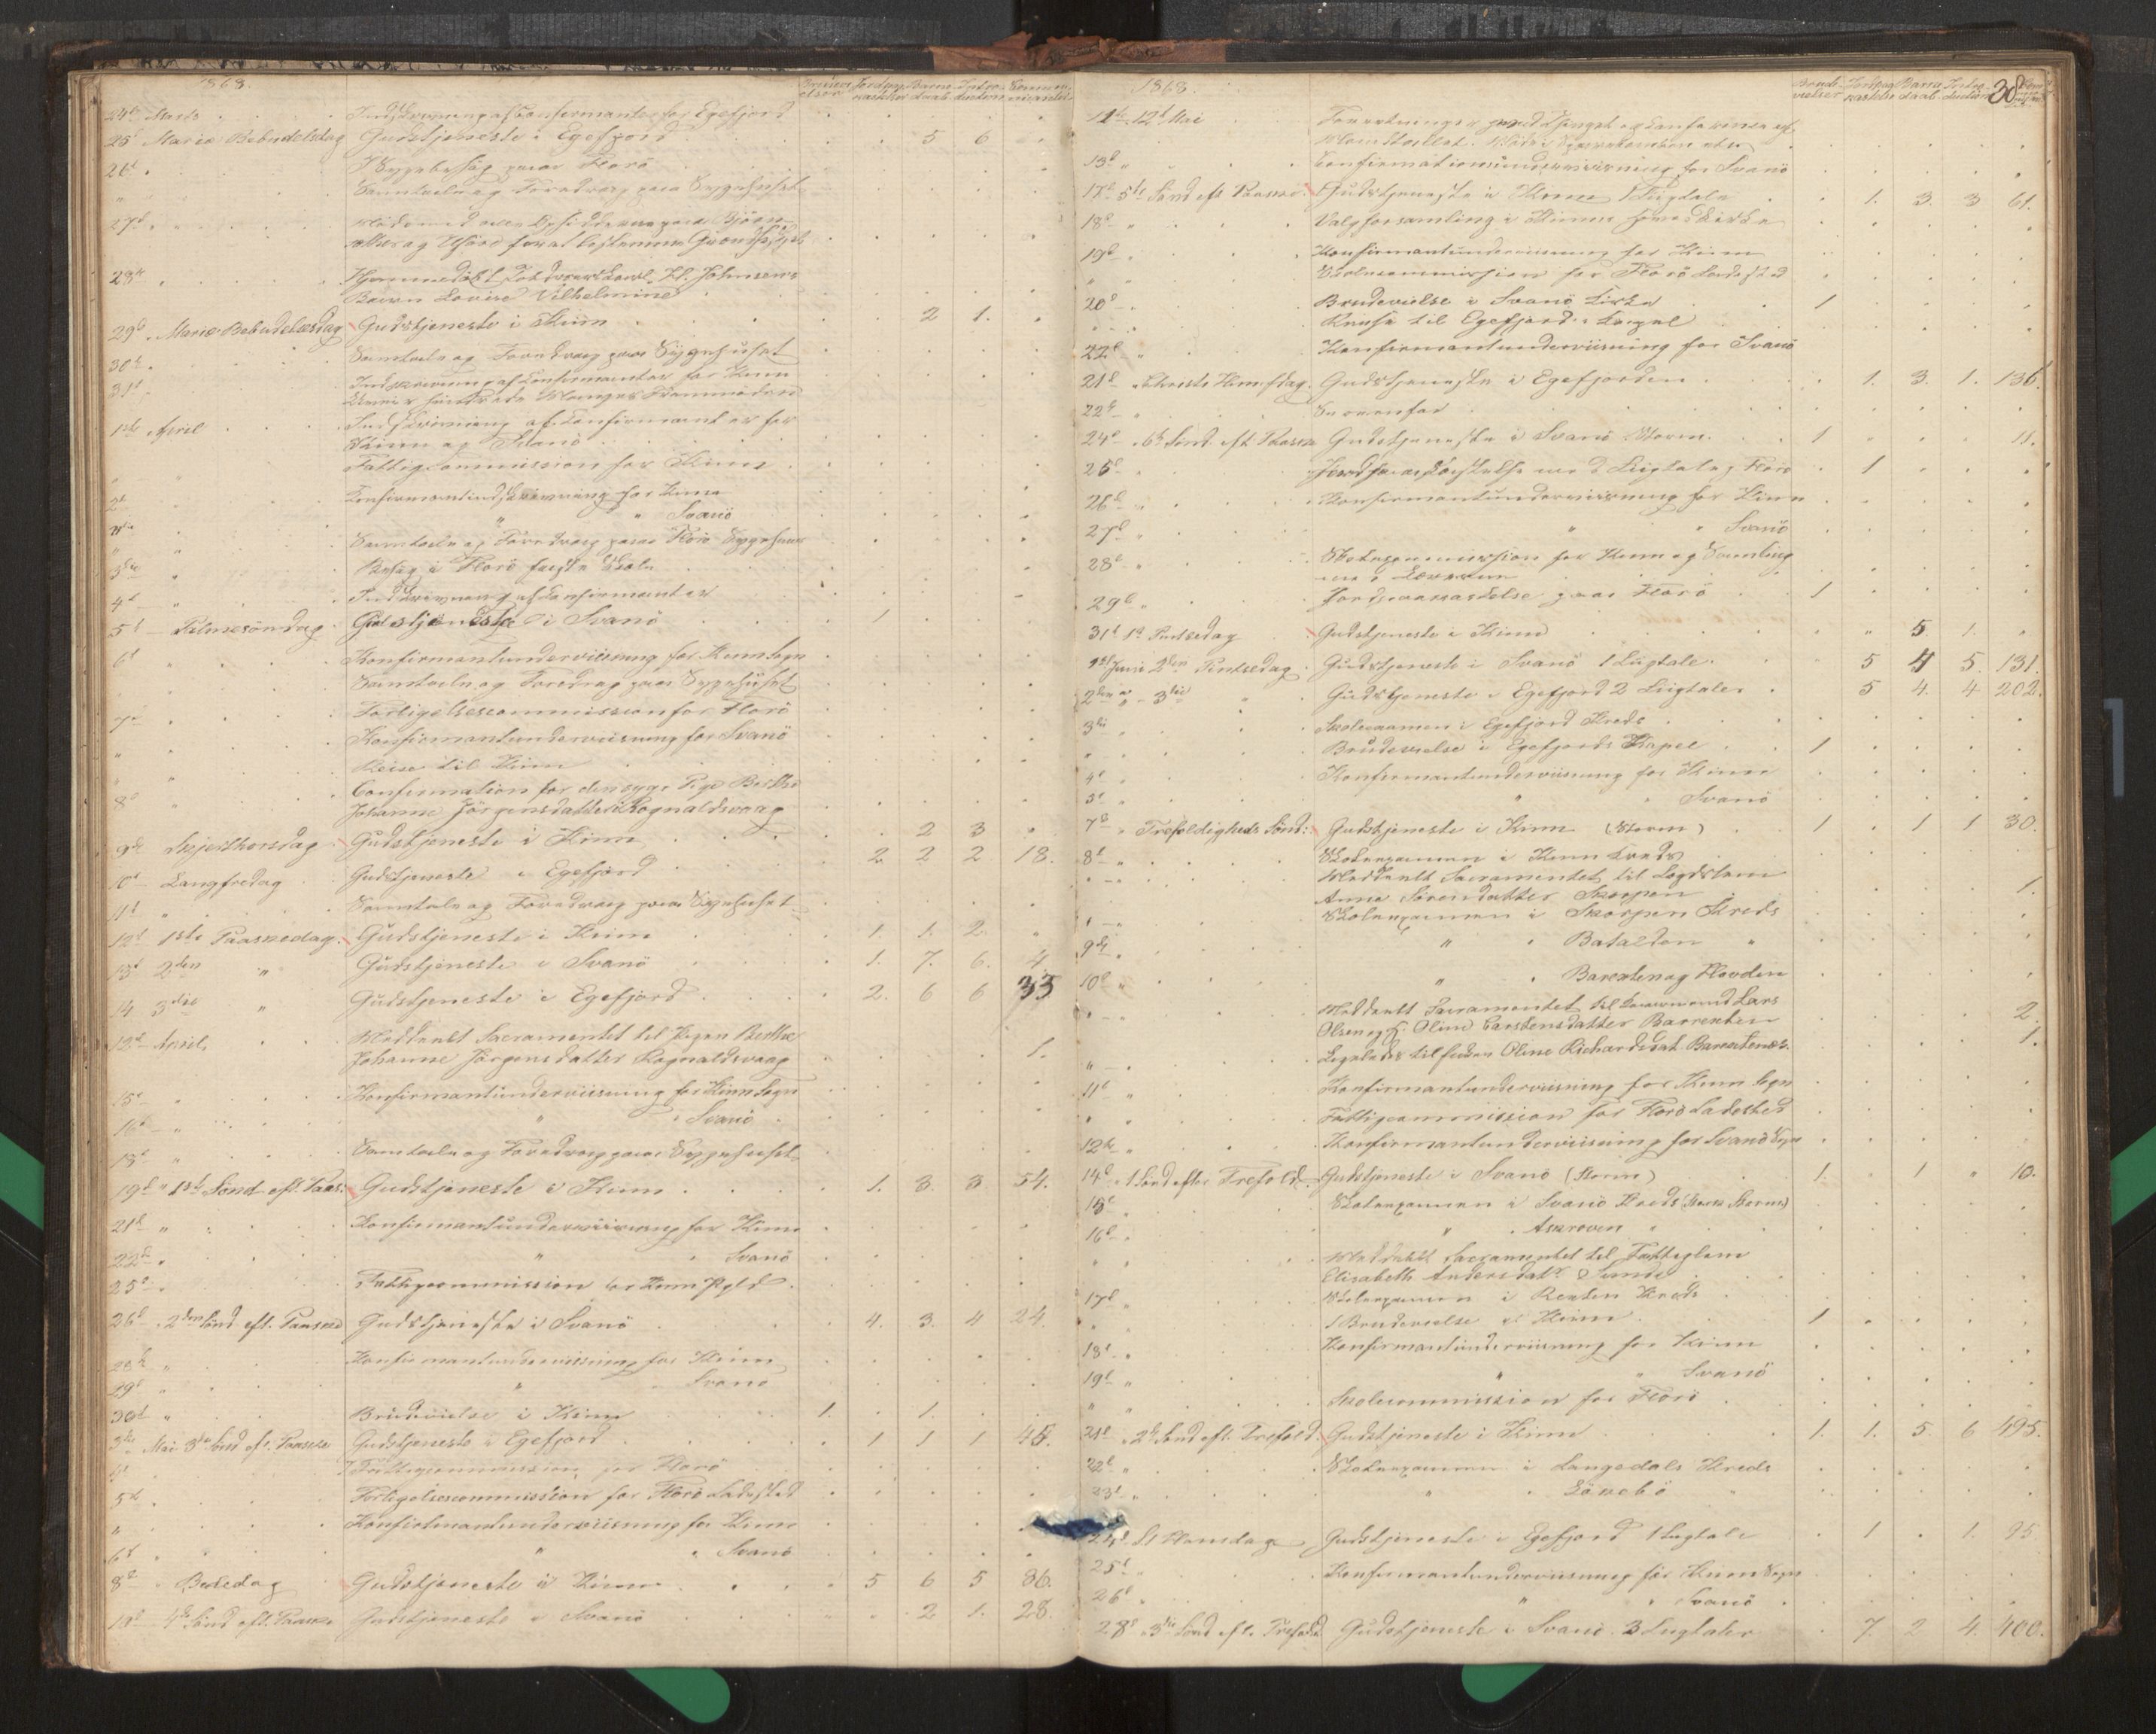 1868.
Barne daab
24de Marts Indskrivning af Confirmanter for Egefjord
25d Mariæ Bebudelsesdag Gudstjeneste i Egefjord 5 6
26d Sygebesøg paa Florö
Samtale og Foredrag paa Sygehuset
27d
28de
Barn Lovise Vilhelmine
29d Mariæ Bebudelsesdag Gudstjeneste i Kinn 2 1.
30te Samtale og Foredrag paa Sygehuset
31d Indskrivning af Confirmanter for Kinn
1ste April Indskrivning af Confirmanter for
Kinn og Svanö
Fattigcommission for Kinn
2d Confirmantindskrivning for Kinn
" " Svanö
Samtale og Foredrag paa Florö Sygehuus
3die Besög i Florö faste Skole
4d Indskrivning af Confirmanter
5d Palmesöndag Gudstjeneste i Svanö 1
6d Konfirmantunderviisning for Kinn Sogn
Samtale og Foredrag paa Sygehuset
7d Forligelsescommission for Florö
" Konfirmantunderviisning for Svanö
" Reise til Kinn
8d Confirmation for den syge Pige Berthe
Johanne Jörgensdatter Rognaldsvaag
9de Skjærthorsdag Gudstjeneste i Kinn 2 3 "
10d Langfredag Gudstjeneste i Egefjord 2 2 2 18.
11d " Samtale og Foredrag paa Sygehuset
12d 1ste Paaskedag Gudstjeneste i Kinn 1. 1. 2. "
13d 2den " Gudstjeneste i Svanö 1. 7. 6. 4
14 3die " Gudstjeneste i Egefjord 2. 6 6 33
12d April Meddeelt Sacramentet til Pigen Berthe
Johanne Jörgensdatter Rognaldsvaag 1.
15d " Konfirmantunderviisning for Kinn Sogn
16d " " Svanö
18d " Samtale og Foredrag paa Sygehuset
19d " 1ste Sönd. eft. Paas. Gudstjeneste i Kinn 1. 3. 3. 54.
21d " Konfirmantunderviisning for Kinn
22d " " Svanö
25d Fattigcommission for Kinn Pgld
26d 2den Sönd eft. Paaske Gudstjeneste i Svanö 4. 3. 4 24.
28de " Konfirmantunderviisning for Kinn
29d " " Svanö
30d " Brudevielse i Kinn 1. 1.
3die Mai 3die Sönd eft. Paaske Gudstjeneste i Egefjord 1 1 1 45.
4d Fattigcommission for Florö
5d Forligelsescommission for Florö Ladested
" Konfirmantunderviisning for Kinn
6d " Svanö
8d Bededag Gudstjeneste i Kinn 5 6 5 86.
10d 4de Sönd eft. Paaske Gudstjeneste i Svanö 2 1. 28.
1868.
38
11te 12d Mai
13d " Confirmationsunderviisning for Svanö
17d 5te Sönd eft Paaske Gudstjeneste i Kinn 1 Liigtale 1. 3. 3 61.
18d " Valgforsamling i Kinns Hovedkirke
19d " Konfirmantunderviisning for Kinn
" Skolecommission for Florö Ladested
20d " Brudevielse i Svanö Kirke 1
Reise til Egefjords Kapel
22d " Konfirmantunderviisning for Svanö
21d Christi Himmelfdag. Gudstjeneste i Egefjorden 1. 3. 1. 136.
22de "
24d 6te Sönd. eft. Paaske Gudstjeneste i Svanö Storm. 1 " " " 11.
25d " Jordpaakastelse med Liigtale paa Florö 1
26d " Konfirmantunderviisning for Kinn
27d " " Svanö
28d " Skolecommission for Kinn og Samling
29d " Jordpaakastelse paa Florö 1
31d 1ste Pintsedag Gudstjeneste i Kinn " 5 1. "
1ste Juni 2den Pintsedag Gudstjeneste i Svanö 1 Liigtale. 5 4 5. 131.
2den " 3die " Gudstjeneste i Egefjord 2 Liigtaler 5 4. 4 202.
3die Skoleexamen i Egefjord Kreds
" Brudevielse i Egefjords Kapel 1
4d " Konfirmantunderviisning for Kinn
5d " " Svanö
7d Trefoldigheds Sönd: Gudstjeneste i Kinn (Storm) 1 . 1 1 30.
8d " Skoleexamen i Kinn Kreds
Meddeelt Sacramentet til Lægdslem
Anne Sörensdatter Skorpen 1.
Skoleexamen i Skorpen Kreds
9de " " Batalden "
10d " " Barekten og Hovden
Meddeelt Sacramentet til Gaardmand Lars
Olsen og H. Oline Carstensdatter Barrekten 2.
Ligeledes til Enken Oline Richardsdat. Barekten 1.
11d " Konfirmantunderviisning for Kinn Sogn
Fattigcommission for Florö Ladested
12te " Konfirmantunderviisning for Svanö Sogn
14d 1 Sönd efter Trefold. Gudstjeneste i Svanö (Storm) 1. . 1 " 10.
15d " Skoleexamen i Svanö Kreds
16d " " Askroven "
" Meddeelt Sacramentet til Fattiglem
Elisabeth Andersdatr Sunde
17d " Skoleexamen i Rexten Kreds
1 Brudevielse i Kinn 1
18d " Konfirmantunderviisning for Kinn
19d " " Svanö
" Skolecommission for Florö
21d 2d Sönd eft. Trefold. Gudstjeneste i Kinn 1. 1. 5. 6 495.
22d " Skoleexamen i Langedals Kreds
23d " "
24d St Hansdag Gudstjeneste i Egefjord 1 Liigtale 1 . 1. 95.
25d Konfirmantunderviisning for Kinn Sogn
26d " " Svanö
28d 3die Sönd eft. Trefold. Gudstjeneste i Svanö 3 Liigtaler 7. 2 4. 400.